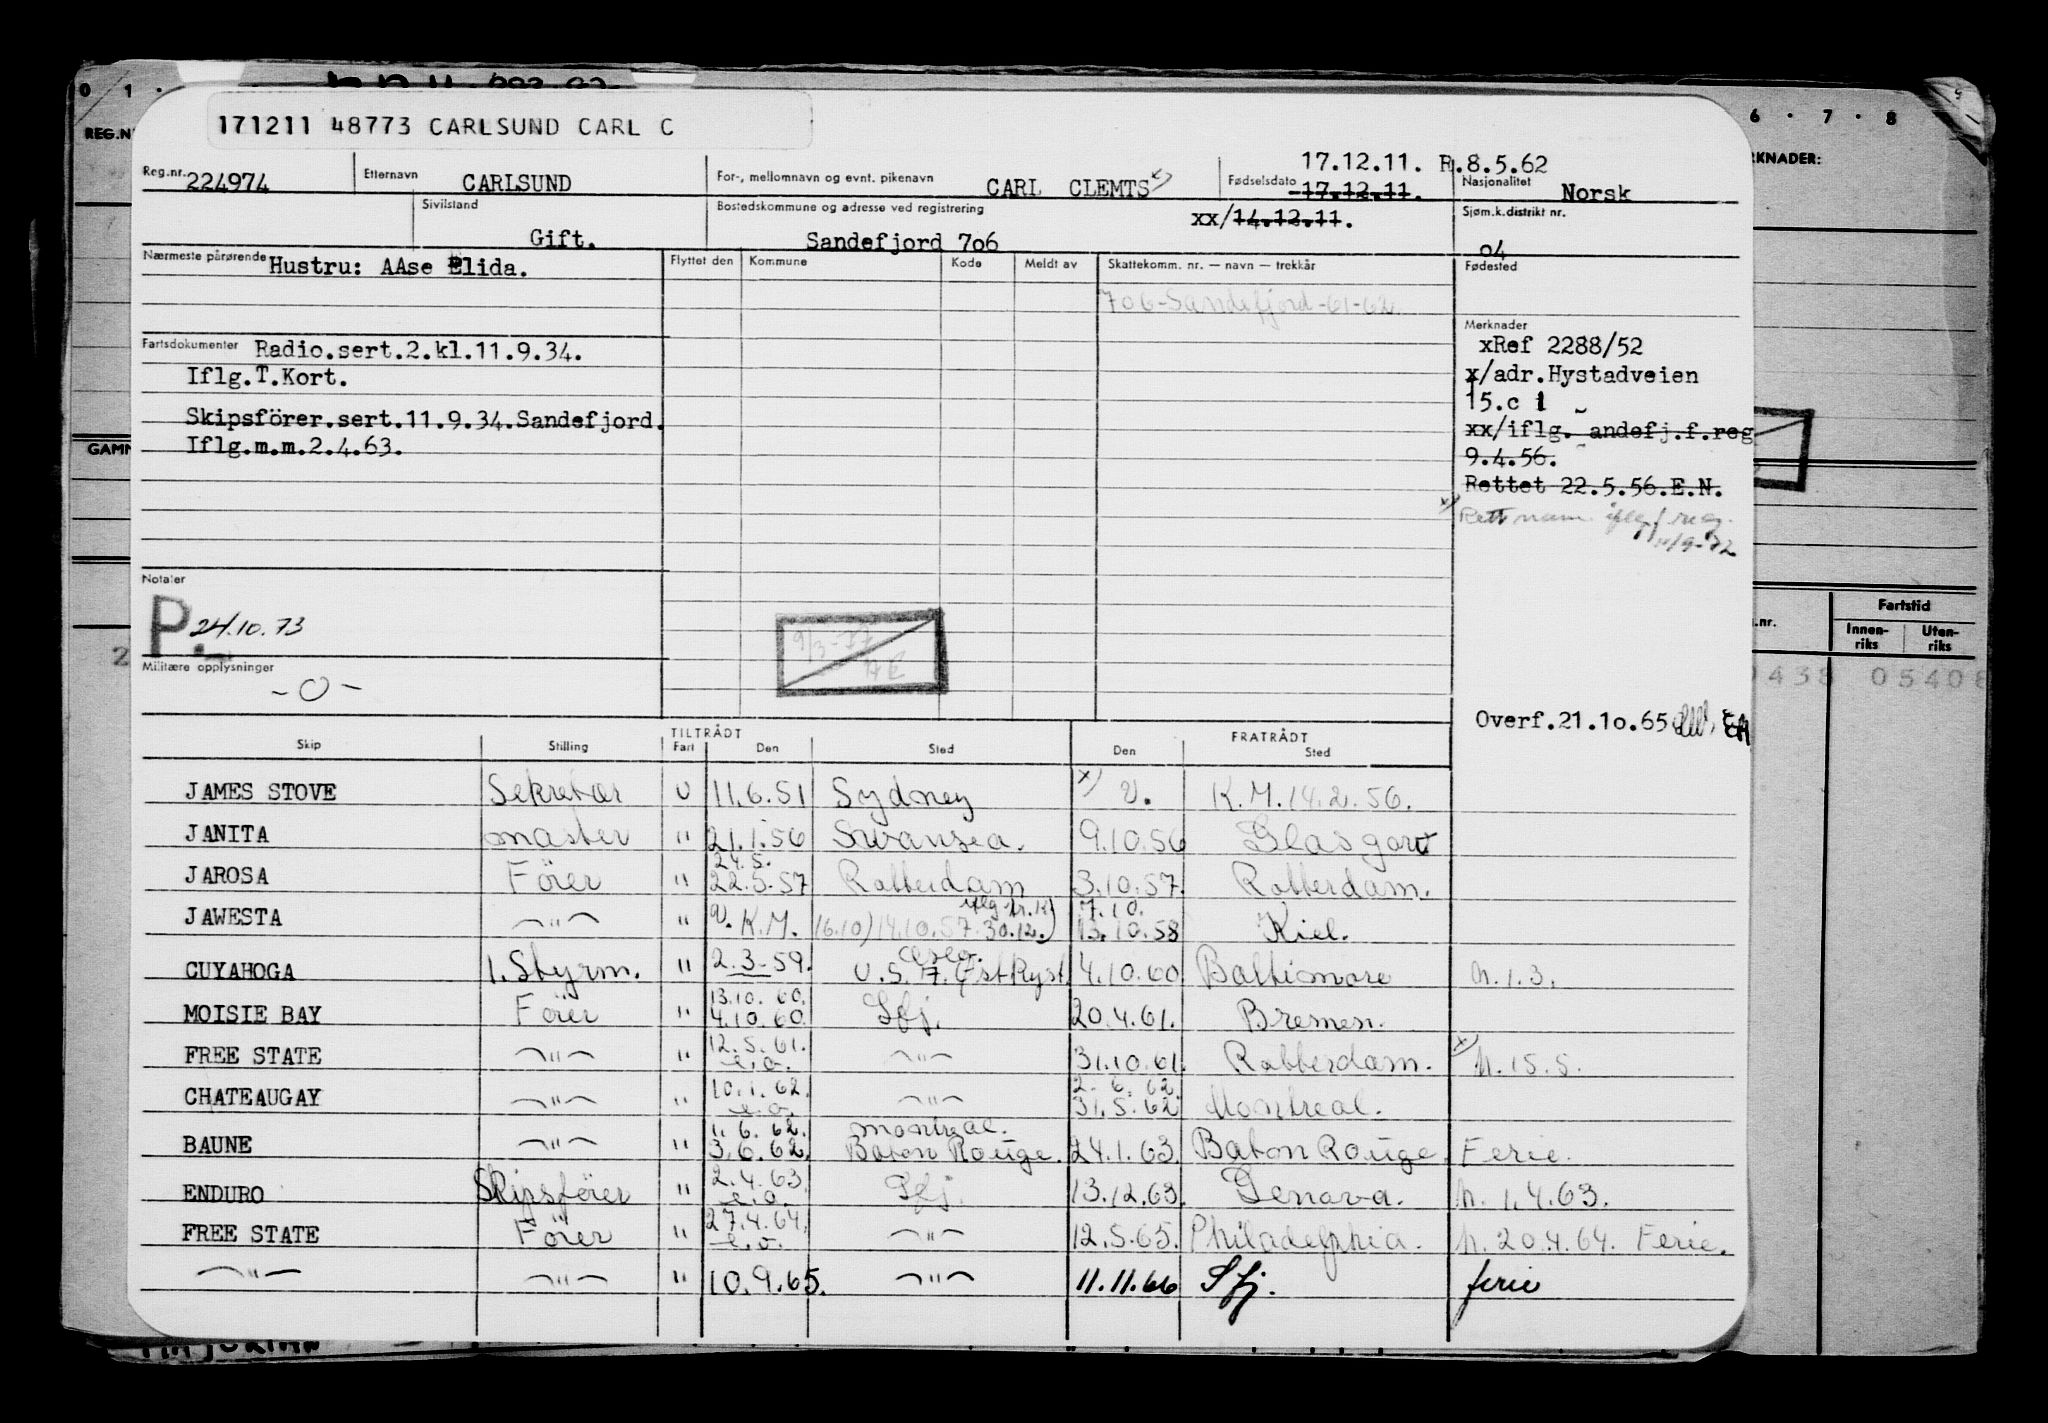 171211 48773 CARLSUND CARL C
REG.N
6 . 7 . 8
RKNADER:
17.12.11. R.8.5.62
Reg.nr. 224974 Etternavn CARLSUND For-, mellomnavn og evnt. pikenavn CARL CLEMTS x) Fødselsdato 17.12.11. Nasjonalitet Norsk
Sivilstand Gift. Bostedskommune og adresse ved registrering Sandefjord 706 xx/14.12.11. Sjøm.k.distrikt nr. 04
Nærmeste pårørende Hustru: AAse Elida. Flyttet den Kommune Kode Meldt av Skattekomm. nr. — navn — trekkår Fødested
706-Sandefjord-61-62
Merknader
Fartsdokumenter Radio.sert.2.kl.11.9.34. xRef 2288/52
Iflg.T.Kort. x/adr.Hystadveien
15.c
Skipsförer.sert.11.9.34.Sandefjord. xx/iflg. andefj.f.reg
Iflg.m.m.2.4.63. 9.4.56.
GAMM
Rettet 22.5.56.E.N.
x) Rett nam. iflg f reg.
11/9-72
Notater
P. 24.10.73
9/3-77
Militære opplysninger
-0-
Fartstid
.nr. Innen-riks Uten-riks
0438 05408
Overf.21.10.65 EA
TILTRÅDT FRATRÅDT
Skip Stilling Fart Den Sted Den Sted
JAMES STOVE Sekretær U 11.6.51 Sydney x) U. K.M.14.2.56.
JANITA master " 21.1.56 Swansea. 9.10.56 Glasgow
24.5.
JAROSA Förer " 22.5.57 Rotterdam 3.10.57. Rotterdam.
iflg tr.k) 7.10.
JAWESTA —"— " U. K.M. 16.10) 14.10.57. 30.12.) 13.10.58 Kiel.
Oslo.
CUYAHOGA 1. Styrm. " 2.3.59. U.S.A. Østkyst 4.10.60 Baltimore h.1.3.
13.10.60.
MOISIE BAY Förer " 4.10.60. Sfj. 20.4.61. Bremen.
12.5.61.
FREE STATE —"— " e.o. —"— 31.10.61. Rotterdam. x) h.15.5.
10.1.62. 2.6.62
CHATEAUGAY —"— " e.o. —"— 31.5.62 Montreal.
1.6.62. montreal.
BAUNE —"— " 3.6.62. Baton Rouge. 24.1.63. Baton Rouge. Ferie.
2.4.63.
ENDURO Skipsförer " e.o. Sfj. 13.12.63. Genova. h. 1.4.63.
27.4.64.
FREE STATE Förer " e.o. —"— 12.5.65. Philadelphia. h. 20.4.64. Ferie.
—"— —"— " 10.9.65. —"— 11.11.66 Sfj. ferie